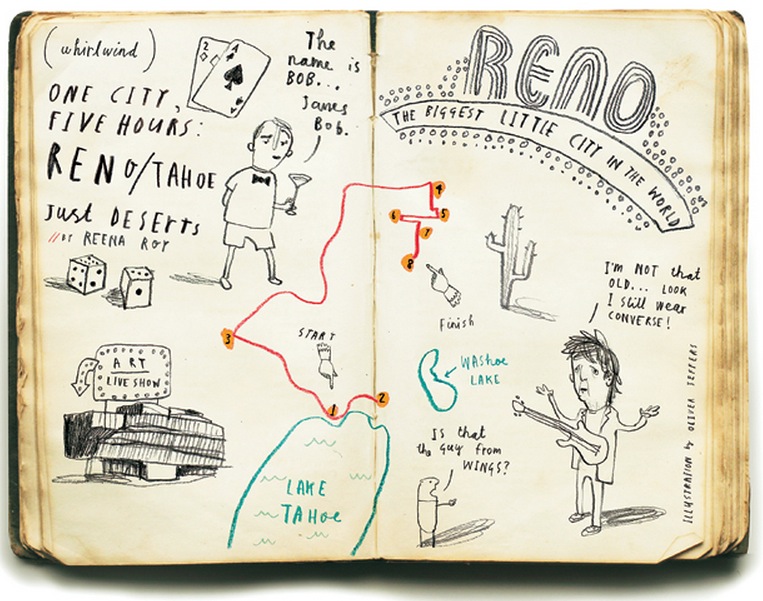 (whirlwind)
ONE CITY,
FIVE HOURS:
RENO/TAHOE
JUST DESERTS
// BY REENA ROY
2
A
The
name is
BOB...
James
Bob.
RENO
THE BIGGEST LITTLE CITY IN THE WORLD
4
6
5
7
8
Finish
3
START
1
2
ART
LIVE SHOW
LAKE
TAHOE
WASHOE
LAKE
Is that
the guy from
WINGS?
I'm NOT that
OLD... LOOK
I still wear
CONVERSE!
ILLUSTRATION by OLIVER JEFFERS